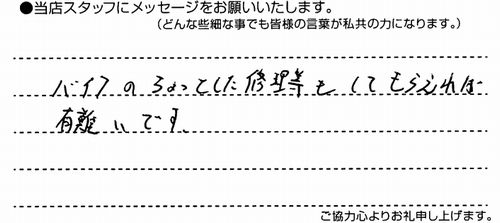 ●当店スタッフにメッセージをお願いいたします。
（どんな些細な事でも皆様の言葉が私共の力になります。）
バイクのちょっとした修理等もしてもらえれば
有難いです。
ご協力心よりお礼申し上げます。